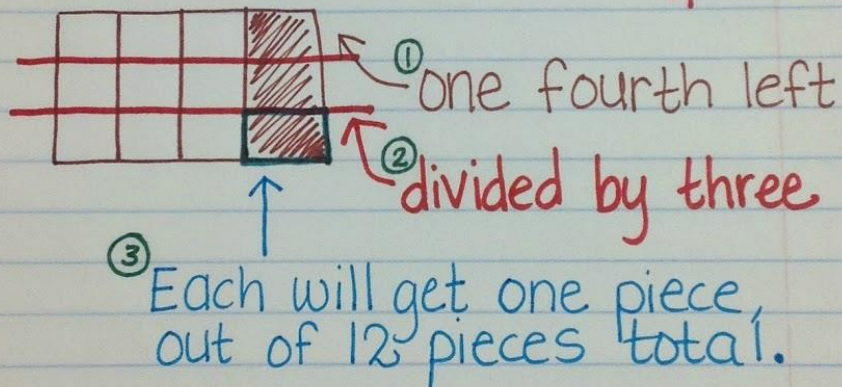 ① one fourth left
② divided by three
③ Each will get one piece,
out of 12 pieces total.